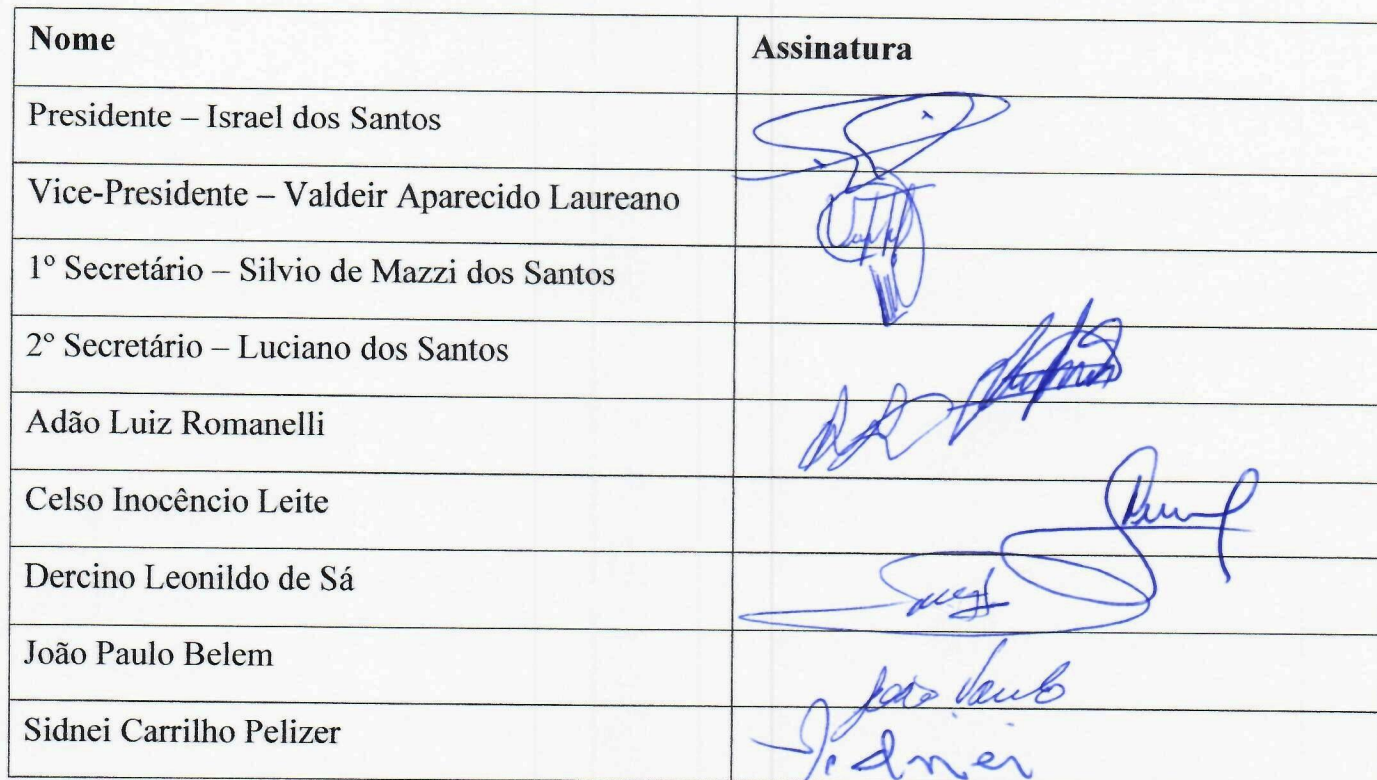 Nome Assinatura
Presidente – Israel dos Santos
Vice-Presidente – Valdeir Aparecido Laureano
1º Secretário – Silvio de Mazzi dos Santos
2º Secretário – Luciano dos Santos
Adão Luiz Romanelli
Celso Inocêncio Leite
Dercino Leonildo de Sá
João Paulo Belem João Paulo
Sidnei Carrilho Pelizer Sidnei